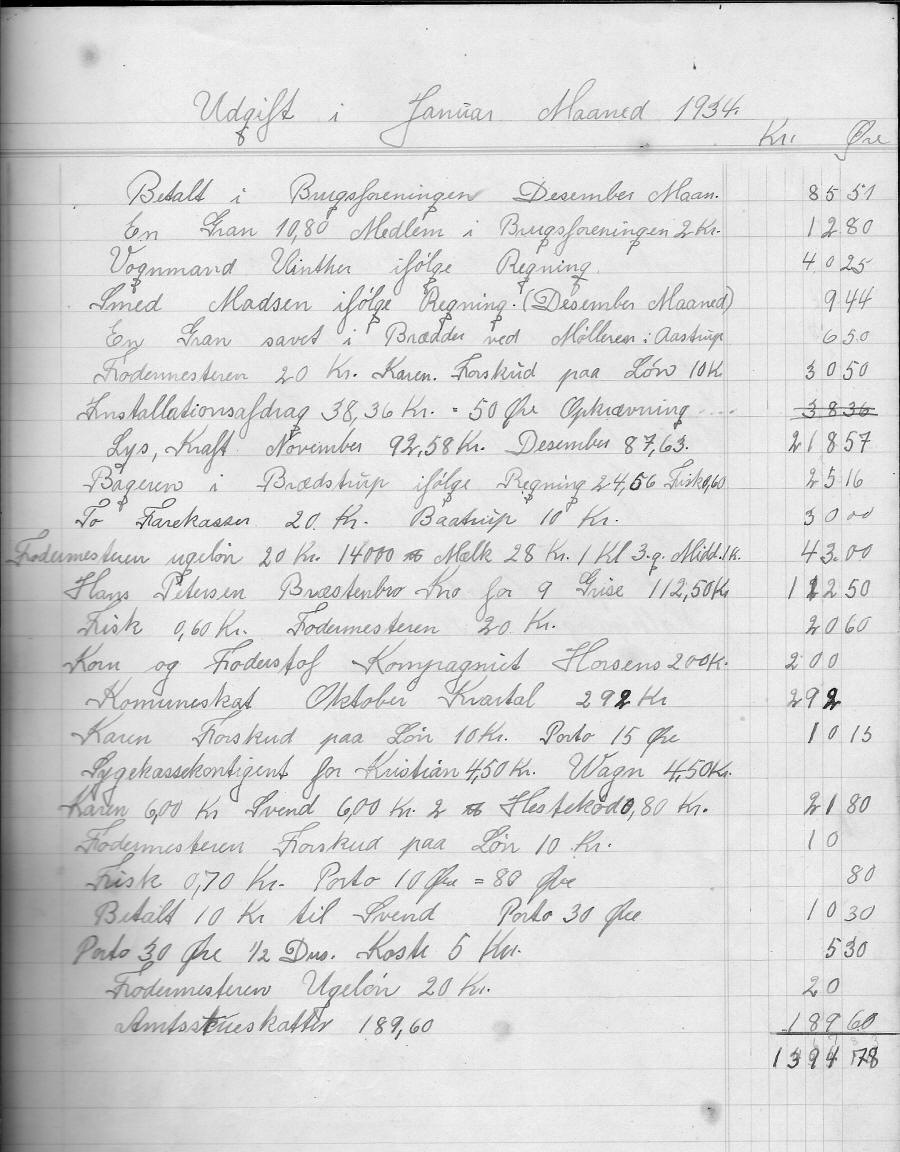 Udgift i Januar Maaned 1934.
Kr. Øre
Betalt i Brugsforeningen Desember Maan. 85 51
En Gran 10,80 Medlem i Brugsforeningen 2 Kr. 12 80
Vognmand Vinther ifølge Regning. 40 25
Smed Madsen ifølge Regning. (Desember Maaned) 9 44
En Gran savet i Brædder ved Mølleren i Aastrup 6 50
Fodermesteren 20 Kr. Karen. Forskud paa Løn 10 K 30 50
Installationsafdrag 38,36 Kr. = 50 Øre Opkrævning .... 38 36
Lys, Kraft November 92,58 Kr. Desember 87,63. 218 57
Bageren i Brædstrup ifølge Regning 24,56 Fisk 0,60 25 16
To Farekasser 20 Kr. Baatrup 10 Kr. 30 00
Fodermesteren ugeløn 20 Kr. 14000 Mælk 28 Kr. 1 Kl 3.g. Midd. 1 K. 43.00
Hans Petersen Bræstenbro Kro for 9 Grise 112,50 Kr 112 50
Fisk 0,60 Kr. Fodermesteren 20 Kr. 20 60
Korn og Foderstof Kompagniet Horsens 200 K. 200
Komuneskat Oktober Kvartal 292 Kr 292
Karen Forskud paa Løn 10 Kr. Porto 15 Øre 10 15
Sygekassekontigent for Kristian 4,50 Kr. Wagn 4,50 Kr.
Karen 6,00 Kr Svend 6,00 Kr. 2 Hestekød 0,80 Kr. 21 80
Fodermesteren Forskud paa Løn 10 Kr. 10
Fisk 0,70 Kr. Porto 10 Øre = 80 Øre 80
Betalt 10 Kr til Svend Porto 30 Øre 10 30
Porto 30 Øre 1/2 Dus. Koste 5 Kr. 5 30
Fodermesteren Ugeløn 20 Kr. 20
Amtsstueskatter 189,60 189 60
1394 78